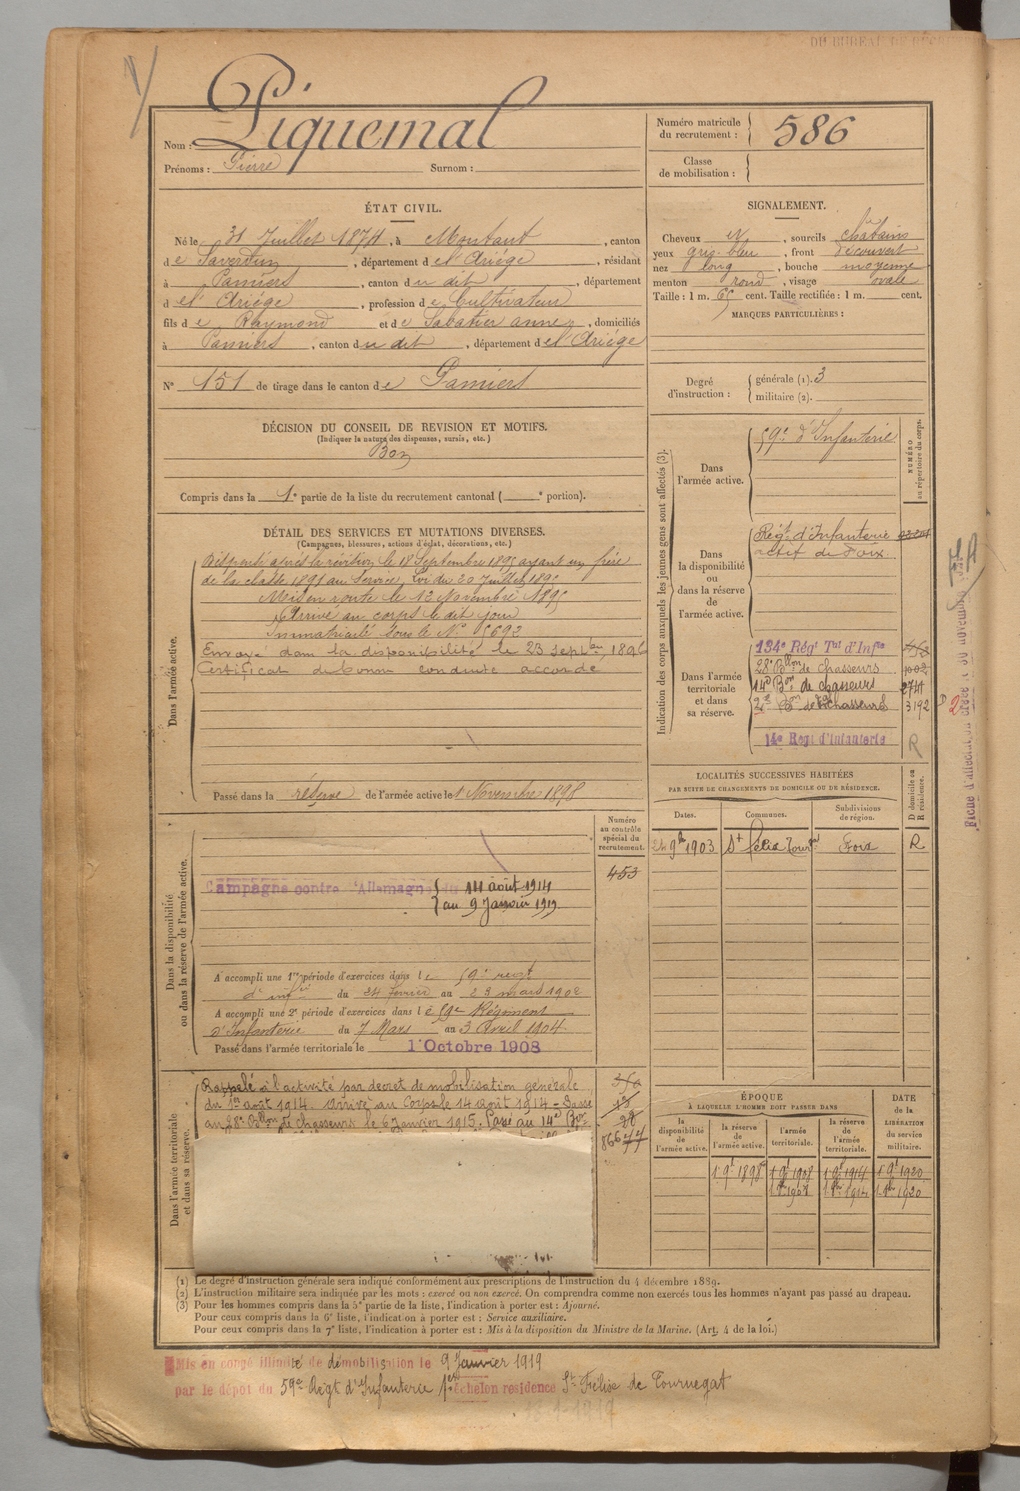 Nom : Piquemal
Prénoms : Pierre Surnom :
Numéro matricule du recrutement : 586
Classe de mobilisation :
ÉTAT CIVIL.
Né le 31 Juillet 1874, à Montaut, canton
de Saverdun, département de l'Ariège, résidant
à Pamiers, canton du dit, département
de l'Ariège, profession de Cultivateur
fils de Raymond et de Sabatier anne, domiciliés
à Pamiers, canton du dit, département de l'Ariège
N° 151 de tirage dans le canton de Pamiers
SIGNALEMENT.
Cheveux et, sourcils châtains
yeux gris-bleu, front découvert
nez long, bouche moyenne
menton rond, visage ovale
Taille : 1 m. 65 cent. Taille rectifiée : 1 m. cent.
MARQUES PARTICULIÈRES :
Degré d'instruction : générale (1). 3
militaire (2).
DÉCISION DU CONSEIL DE REVISION ET MOTIFS.
(Indiquer la nature des dispenses, sursis, etc.)
Bon
Compris dans la 1e partie de la liste du recrutement cantonal ( e portion).
DÉTAIL DES SERVICES ET MUTATIONS DIVERSES.
(Campagnes, blessures, actions d'éclat, décorations, etc.)
Dans l'armée active.
après la révision le 18 Septembre 1895 ayant un frère
de la classe 1895 au Service, Loi du 20 Juillet 1895
Mis en route le 12 Novembre 1895
Arrivé au corps le dit jour
Immatriculé sous le N° 5692
Envoyé dans la disponibilité le 23 septbre 1896
Certificat de bonne conduite accordé
Passé dans la réserve de l'armée active le 1 Novembre 1898
Dans la disponibilité ou dans la réserve de l'armée active.
Numéro au contrôle spécial du recrutement.
453
Campagne contre l'Allemagne du 14 août 1914
au 9 Janvier 1919
A accompli une 1re période d'exercices dans le 59e regt
d'infie du 24 fevrier au 23 mars 1902
A accompli une 2e période d'exercices dans le 59e Régiment
d'Infanterie du 7 Mars au 3 Avril 1904
Passé dans l'armée territoriale le 1 Octobre 1908
Dans l'armée territoriale et dans sa réserve.
Rappelé à l'activité par decret de mobilisation générale
du 1er août 1914. Arrivé au Corps le 14 août 1914 - Passé
au 28e Bllon de chasseurs le 6 Janvier 1915. Passé au 14e Bon
Indication des corps auxquels les jeunes gens sont affectés (3).
NUMÉRO au répertoire du corps.
Dans l'armée active.
59e d'Infanterie
Dans la disponibilité ou dans la réserve de l'armée active.
Régt d'Infanterie
actif de Foix.
Dans l'armée territoriale et dans sa réserve.
134e Régt Tal d'Infie
28e Bllon de chasseurs
14e Bon de chasseurs 2741
Bon de chasseurs 3192
14e Regt d'infanterie R
LOCALITÉS SUCCESSIVES HABITÉES
PAR SUITE DE CHANGEMENTS DE DOMICILE OU DE RÉSIDENCE.
Dates. Communes. Subdivisions de région. D domicile ou R résidence.
24 9b 1903 St Félix Tourgat Foix R
ÉPOQUE
À LAQUELLE L'HOMME DOIT PASSER DANS
la disponibilité de l'armée active. la réserve de l'armée active. l'armée territoriale. la réserve de l'armée territoriale. DATE de la LIBÉRATION du service militaire.
(1) Le degré d'instruction générale sera indiqué conformément aux prescriptions de l'instruction du 4 décembre 1889.
(2) L'instruction militaire sera indiquée par les mots : exercé ou non exercé. On comprendra comme non exercés tous les hommes n'ayant pas passé au drapeau.
(3) Pour les hommes compris dans la 5e partie de la liste, l'indication à porter est : Ajourné.
Pour ceux compris dans la 6e liste, l'indication à porter est : Service auxiliaire.
Pour ceux compris dans la 7e liste, l'indication à porter est : Mis à la disposition du Ministre de la Marine. (Art. 4 de la loi.)
Mis en congé illimité de démobilisation le 9 Janvier 1919
par le dépot du 59e Régt d'Infanterie 1er Echelon residence St Félix de Tournegat